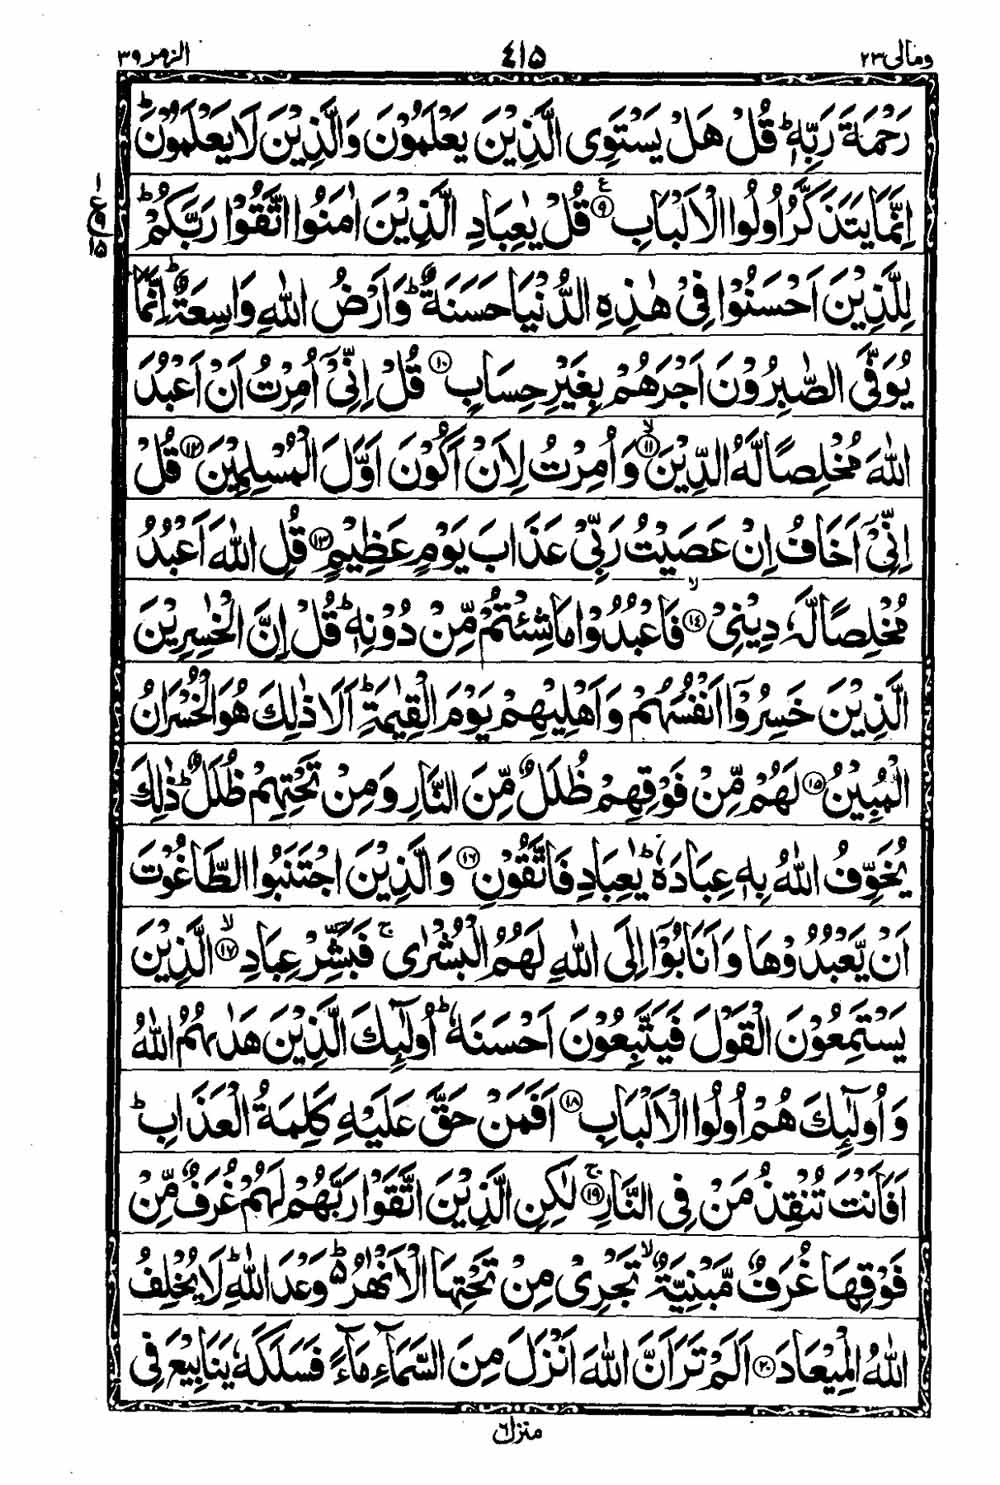 ومالی ۲۳
٤١۵
الزمر ۳۹
رَحْمَةَ رَبِّهٖ ؕ قُلْ هَلْ يَسْتَوِى الَّذِيْنَ يَعْلَمُوْنَ وَالَّذِيْنَ لَا يَعْلَمُوْنَ ؕ
اِنَّمَا يَتَذَكَّرُ اُولُوا الْاَلْبَابِ ۹ ع قُلْ يٰعِبَادِ الَّذِيْنَ اٰمَنُوا اتَّقُوْا رَبَّكُمْ ؕ
لِلَّذِيْنَ اَحْسَنُوْا فِىْ هٰذِهِ الدُّنْيَا حَسَنَةٌ ؕ وَاَرْضُ اللّٰهِ وَاسِعَةٌ ؕ اِنَّمَا
يُوَفَّى الصّٰبِرُوْنَ اَجْرَهُمْ بِغَيْرِ حِسَابٍ ۱۰ قُلْ اِنِّىْۤ اُمِرْتُ اَنْ اَعْبُدَ
اللّٰهَ مُخْلِصًا لَّهُ الدِّيْنَ ۱۱ ۙ وَاُمِرْتُ لِاَنْ اَكُوْنَ اَوَّلَ الْمُسْلِمِيْنَ ۱۲ قُلْ
اِنِّىْۤ اَخَافُ اِنْ عَصَيْتُ رَبِّىْ عَذَابَ يَوْمٍ عَظِيْمٍ ۱۳ قُلِ اللّٰهَ اَعْبُدُ
مُخْلِصًا لَّهٗ دِيْنِىْ ۱٤ ۙ فَاعْبُدُوْا مَا شِئْتُمْ مِّنْ دُوْنِهٖ ؕ قُلْ اِنَّ الْخٰسِرِيْنَ
الَّذِيْنَ خَسِرُوْۤا اَنْفُسَهُمْ وَاَهْلِيْهِمْ يَوْمَ الْقِيٰمَةِ ؕ اَلَا ذٰلِكَ هُوَ الْخُسْرَانُ
الْمُبِيْنُ ۱۵ لَهُمْ مِّنْ فَوْقِهِمْ ظُلَلٌ مِّنَ النَّارِ وَمِنْ تَحْتِهِمْ ظُلَلٌ ؕ ذٰلِكَ
يُخَوِّفُ اللّٰهُ بِهٖ عِبَادَهٗ ؕ يٰعِبَادِ فَاتَّقُوْنِ ۱٦ وَالَّذِيْنَ اجْتَنَبُوا الطَّاغُوْتَ
اَنْ يَّعْبُدُوْهَا وَاَنَابُوْۤا اِلَى اللّٰهِ لَهُمُ الْبُشْرٰى ۚ فَبَشِّرْ عِبَادِ ۱۷ ۙ الَّذِيْنَ
يَسْتَمِعُوْنَ الْقَوْلَ فَيَتَّبِعُوْنَ اَحْسَنَهٗ ؕ اُولٰٓئِكَ الَّذِيْنَ هَدٰىهُمُ اللّٰهُ
وَاُولٰٓئِكَ هُمْ اُولُوا الْاَلْبَابِ ۱۸ اَفَمَنْ حَقَّ عَلَيْهِ كَلِمَةُ الْعَذَابِ ؕ
اَفَاَنْتَ تُنْقِذُ مَنْ فِى النَّارِ ۱۹ ۚ لٰكِنِ الَّذِيْنَ اتَّقَوْا رَبَّهُمْ لَهُمْ غُرَفٌ مِّنْ
فَوْقِهَا غُرَفٌ مَّبْنِيَّةٌ ۙ تَجْرِىْ مِنْ تَحْتِهَا الْاَنْهٰرُ ۵ؕ وَعْدَ اللّٰهِ ؕ لَا يُخْلِفُ
اللّٰهُ الْمِيْعَادَ ۲۰ اَلَمْ تَرَ اَنَّ اللّٰهَ اَنْزَلَ مِنَ السَّمَآءِ مَآءً فَسَلَكَهٗ يَنَابِيْعَ فِى
۱
ع
۹
۱۵
منزل ٦